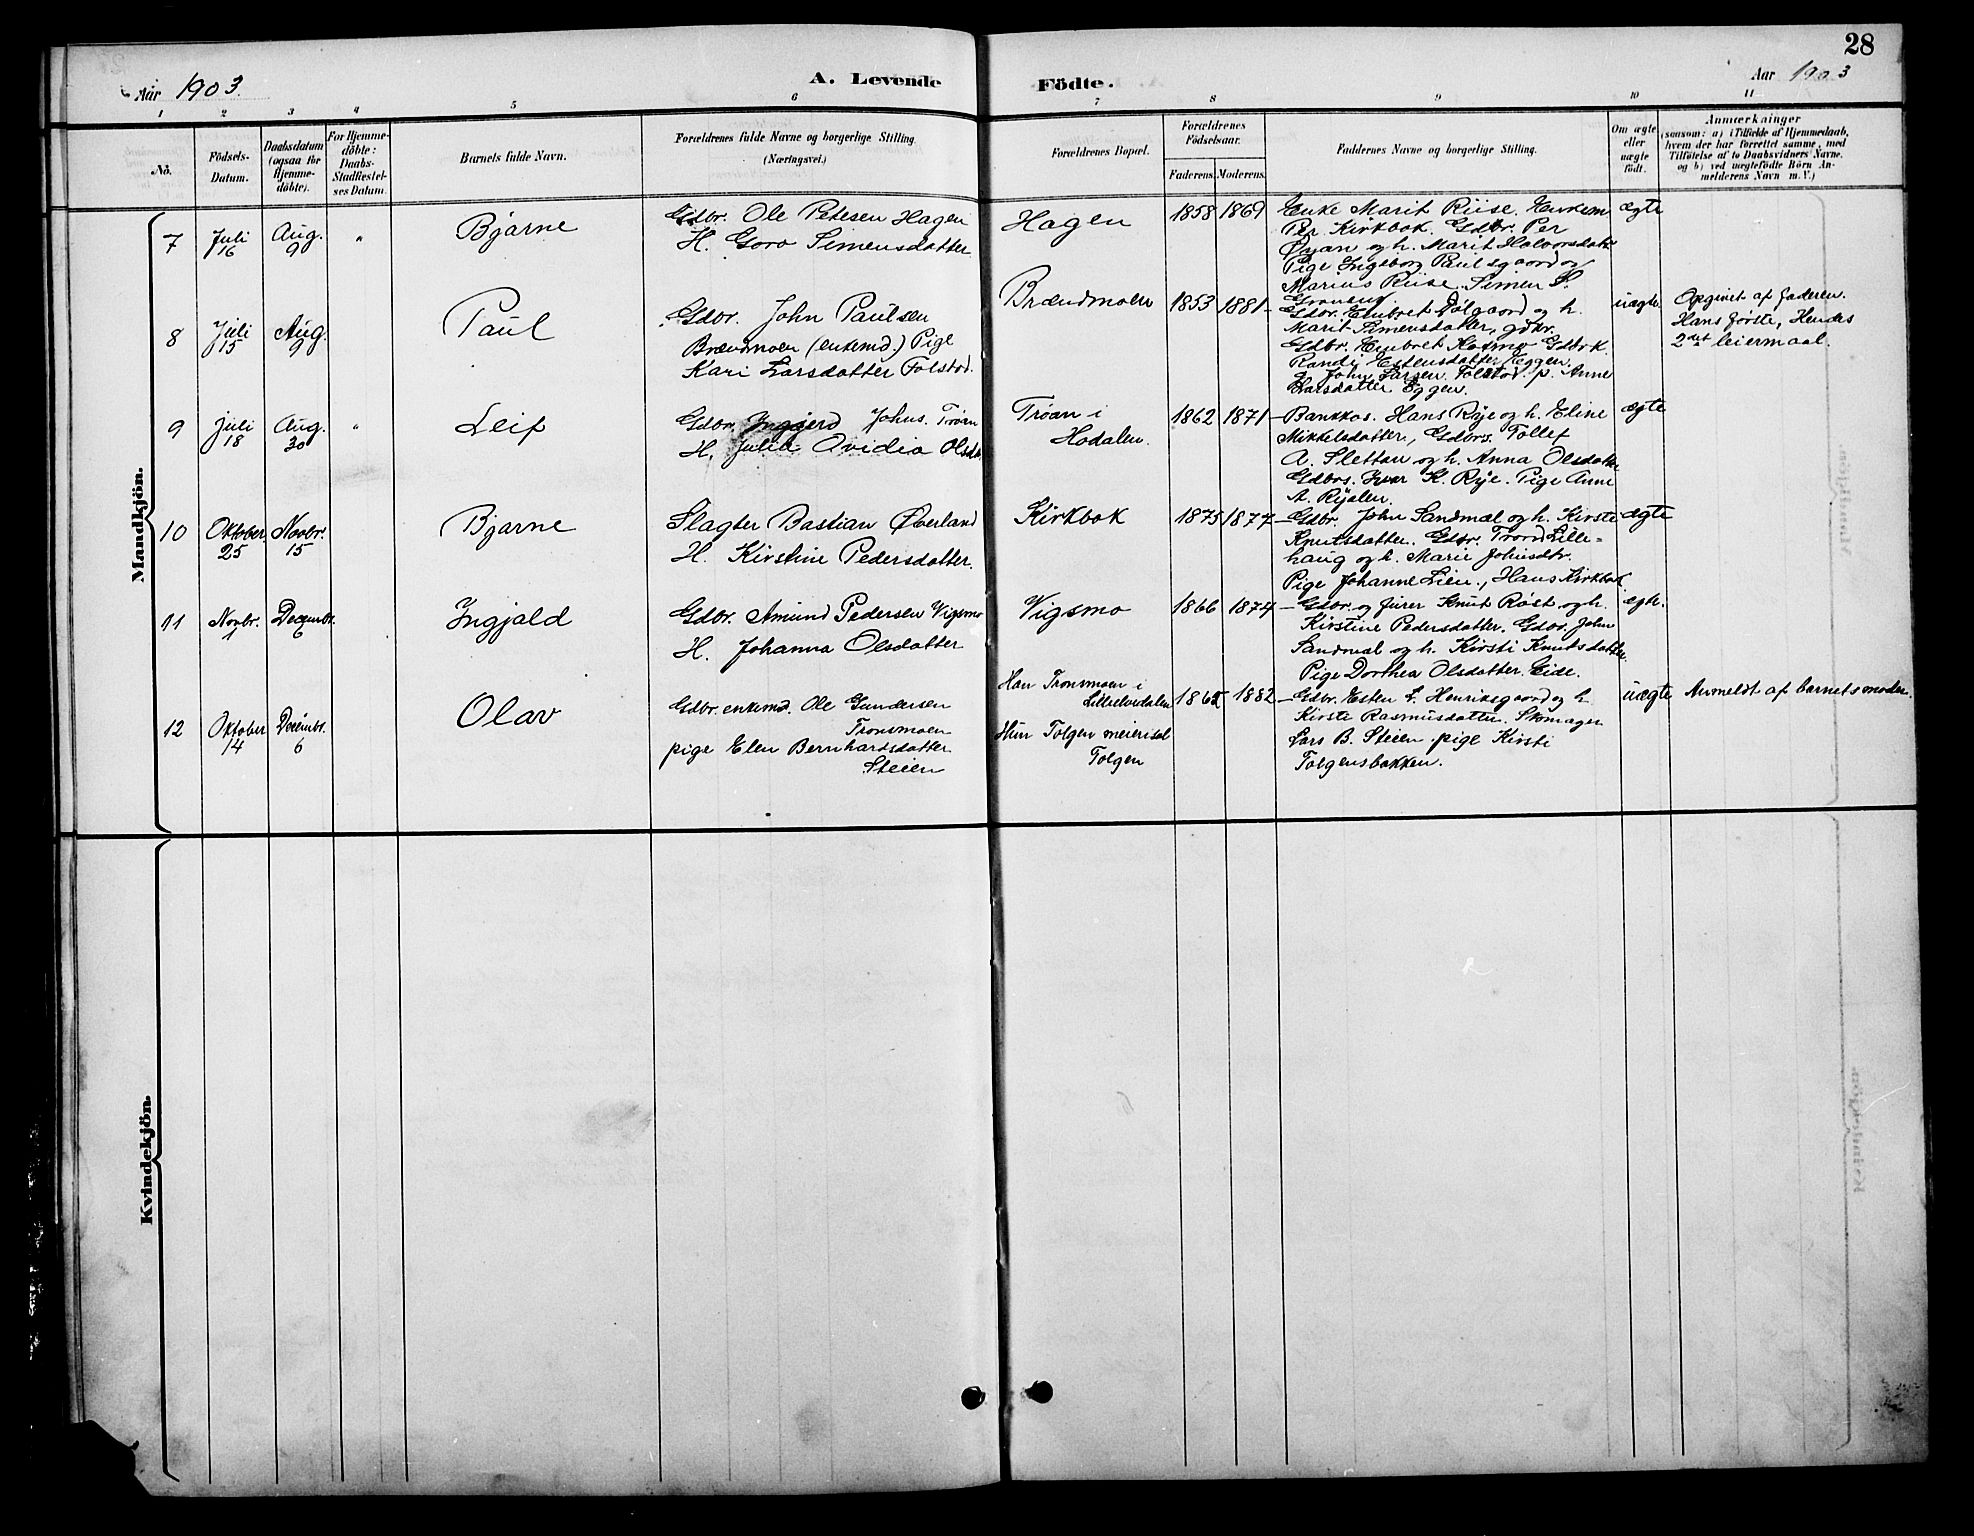 28
Aar 1903.
A. Levende Födte.
Aar 1903
1 2 3 4 5 6 7 8 9 10 11
No.
Födsels-
Datum.
Daabsdatum
(ogsaa for
Hjemme-
döbte).
For Hjemme-
döbte:
Daabs-
Stadfæstel-
ses Datum.
Barnets fulde Navn.
Forældrenes fulde Navne og borgerlige Stilling.
(Næringsvei.)
Forældrenes Bopæl.
Forældrenes
Födselsaar.
Faderens. Moderens.
Faddernes Navne og borgerlige Stilling.
Om ægte
eller
uægte
født.
Anmærkninger
(saasom: a) i Tilfælde af Hjemmedaab,
hvem der har forrettet samme, med
Tilföielse af to Daabsvidners Navne,
og b) ved uægtefödte Börn An-
melderens Navn m. V.)
Mandkjön.
7
Juli
16
Aug.
9
"
Bjarne
Gdbr. Ole Petesen Hagen
H. Goro Simensdatter
Hagen
1858 1869
Enke Marit Riise. Enkem
Per Kirkbak. Gdbr. Per
Øyan og h. Marit Halvorsdatt
Pige Ingeborg Paulsgaard og
Marius Riise. Simen S.
ægte
8
Juli
15
Aug.
9
Paul
Gdbr. John Paulsen
Brændmoen (enkemd.) Pige
Kari Larsdatter Tolstad.
Brændmoen
1853 1881
Gdbr. Embret Dølgaard og h.
Marit Simensdatter, gdbr.
Gdbr. Embret Kosmo Gdbr k.
Randi Estensdatter Eggen,
John Larsen Tolstad. p. Anne
Larsdatter Eggen.
uægte
Opgivet af faderen.
Hans første, Hendes
2det leiermaal.
9
Juli
18
Aug.
30
"
Leif
Gdbr. Ingjerd Johns. Trøen
H. Julia Ovidia Olsda
Trøan i
Hodalen.
1862 1871
Bankkas. Hans Rye og h. Eline
Mikkelsdatter, Gdbrs. Tollef
A. Slettan og h. Anna Olsdatter
Gdbrs. Ivar K. Rye. Pige Anne
A. Ryalen.
ægte
10
Oktober
25
Novbr.
15
Bjarne
Slagter Bastian Øverland
H. Kirstine Pedersdatter.
Kirkbak
1875 1877
Gdbr. John Sandmæl og h. Kirsti
Knutsdatter. Gdbr. Trond Lille-
haug og h. Marie Johnsdtr.
Pige Johanne Lien, Hans Kirkbak
ægte
11
Novbr.
1
Decembr.
6
Ingjald
Gdbr. Amund Pedersen Vigsmo
H. Johanna Olsdatter
Vigsmo
1866 1874
Gdbr. og furer Knut Røst og h.
Kirstine Pedersdatter. Gdbr. John
Sandmæl og h. Kirsti Knutsdatter.
Pige Dorthea Olsdatter Eide.
ægte.
12
Oktober
14
Decembr.
6
Olav
Gdbr. enkemd. Ole Gundersen
Tronsmoen
pige Elen Bernhartsdatter
Steien
Han Tronsmoen i
Lilleelvedalen
Hun Tolgen meieri sd
Tolgen
1865 1882
Gdbr. Esten E. Henriksgaard og h.
Kirsti Rasmusdatter. Skomager
Lars B. Steien. pige Kirsti
Tolgensbakken.
uægte
Anmeldt af barnets moder.
Kvindekjön.